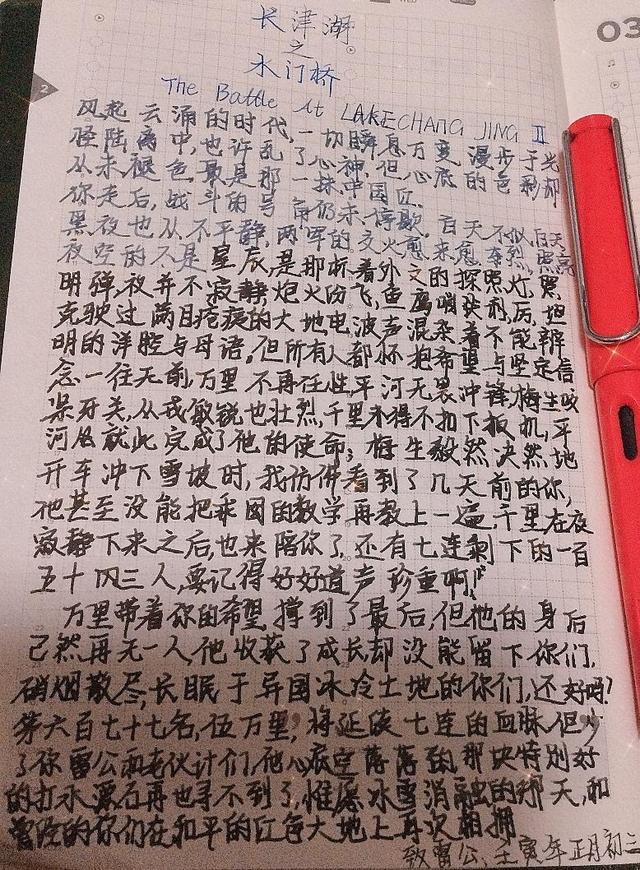 长津湖
之
水门桥
03
2
The Battle At LAKE CHANG JING II
风起云涌的时代,一切瞬息万变,漫步于光
怪陆离中,也许乱了心神,但心底的色彩却
从未褪色,最是那一抹中国红
你走后,战斗的号角仍未停歇.白天不似白天,
黑夜也从不平静,两军的交火愈来愈奔烈,照亮
夜空的不是星辰,是那标着外文的探照灯,照
明弹,夜并不寂静,炮火纷飞,鱼鹰哨获利后,坦
克驶过满目疮痍的大地,电波声混杂着不能辨
明的洋腔与母语,但所有人都怀抱希望与坚定信
念一往无前,万里不再任性,平河无畏冲锋,梅生咬
紧牙关,从戎敏锐也壮烈,千里不得不扣下扳机,平
河然就此完成了他的使命;梅生毅然决然地
开车冲下雪坡时,我仿佛看到了几天前的你,
他甚至没能把乘囡的数学再教上一遍,千里在夜
寂静下来之后,也来陪你了,还有七连剩下的一百
五十四三人,要记得好好道声珍重啊!
万里带着你的希望,撑到了最后,但他的身后
已然再无一人,他收获了成长却没能留下你们.
硝烟散尽,长眠于异国冰冷土地的你们,还好吗?
第六百七十七名,伍万里,将延续七连的血脉.但少
了你雷公和老伙计们,他心底空落落的,那块特别好
的打水漂石再也寻不到了,惟愿冰雪消融的那天,和
曾经的你们在和平的红色大地上再次相拥
致雷公、壬寅年正月初三